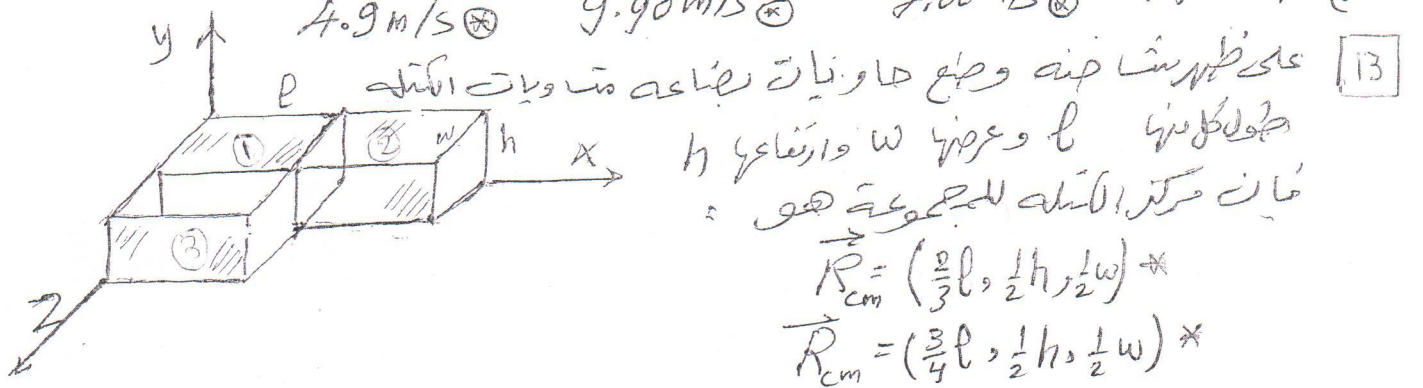 4.9 m/s ⊛ 9.90 m/s ⊛
13 على ظهر شاحنه وضع حاويات بضاعه متساويات الكتله
طول كل منها l وعرضها w وارتفاعها h
فان مركز الكتله للمجموعة هو :
R⃗cm = (2/3 l, 1/2 h, 1/2 w) *
R⃗cm = (3/4 l, 1/2 h, 1/2 w) *
y
l
① ② w h X
③
Z